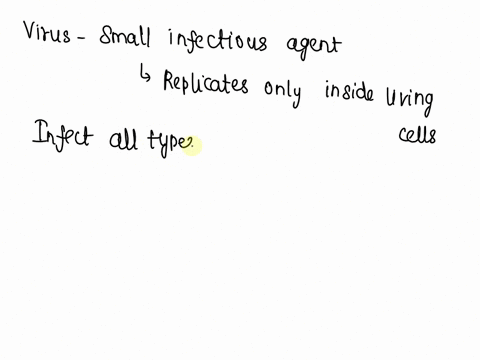 Virus - Small infectious agent
↳ Replicates only inside living cells
Infect all types